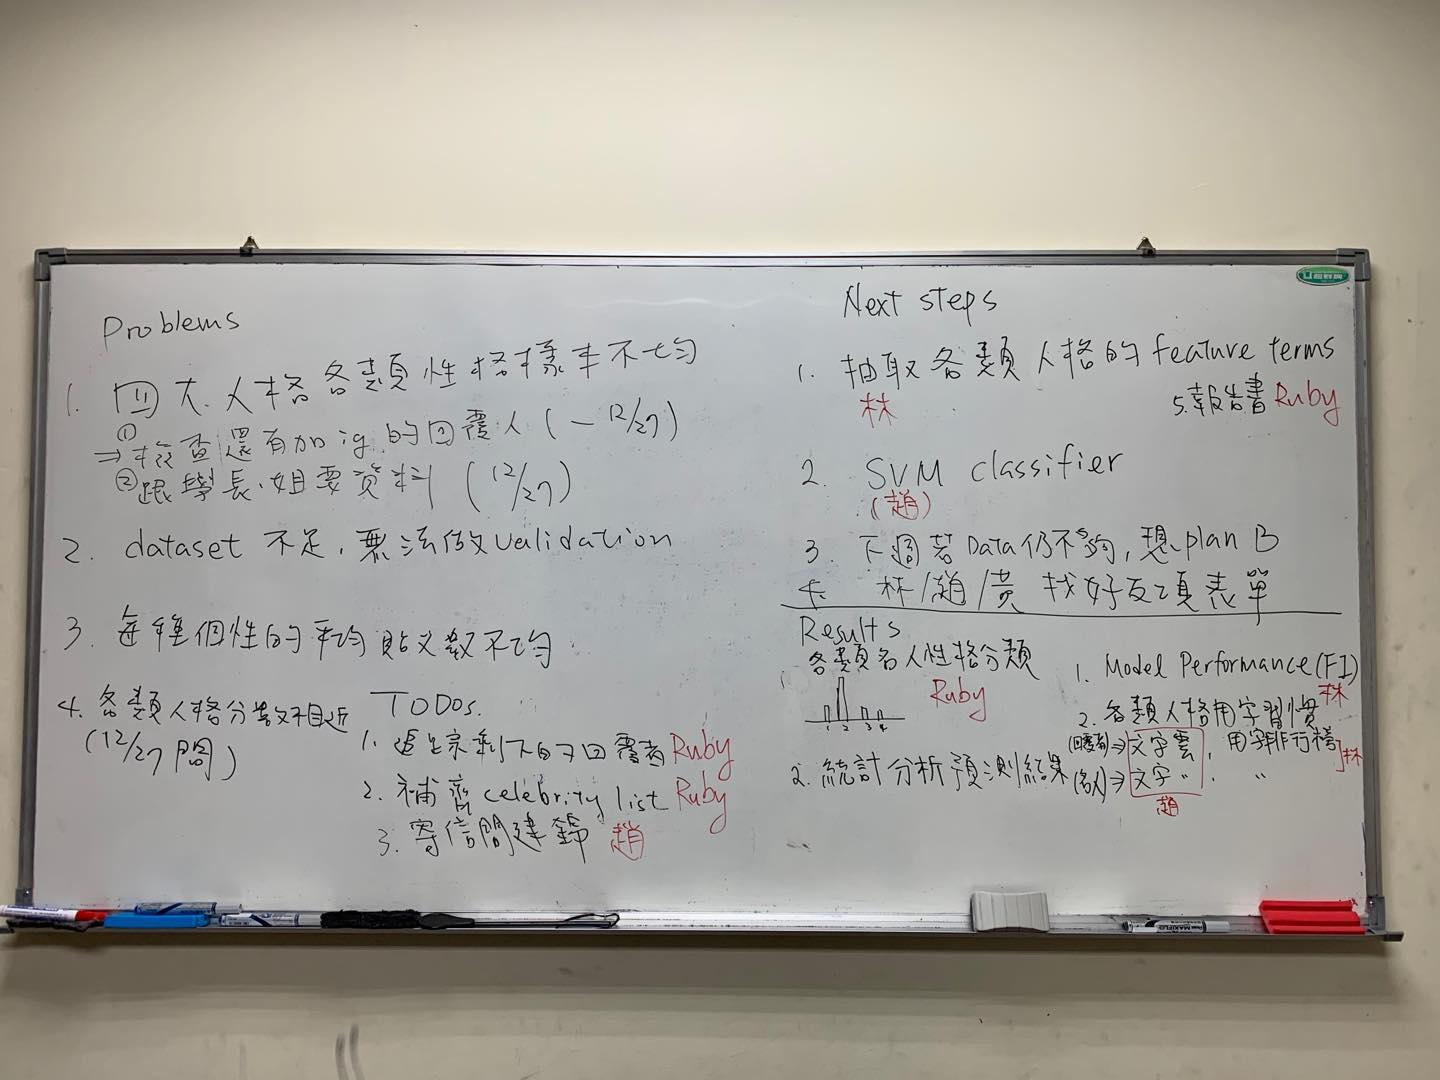 Problems
1. 四大人格各類性格樣本不均
⇒ ①檢查還有加ig的回覆人 (- 12/27)
②跟學長姐要資料 (12/27)
2. dataset 不足, 無法做validation
3. 每種個性的平均貼文數不均
4. 各類人格分數相近
(12/27 問)
TODOs.
1. 追蹤剩下的回覆者 Ruby
2. 補齊 celebrity list Ruby
3. 寄信問建錦 趙
Next steps
1. 抽取各類人格的 feature terms
林
5. 報告書 Ruby
2. SVM classifier
(趙)
3. 下週若Data仍不夠, 想 plan B
4. 林/趙/黃 找好友填表單
Results
1. 各類名人性格分類
Ruby
1 2 3 4
2. 統計分析預測結果
1. Model Performance (F1)
林
2. 各類人格用字習慣
(回覆者) ⇒ 文字雲, 用字排行榜
林
(名人) ⇒ 文字 〃 , 〃
趙